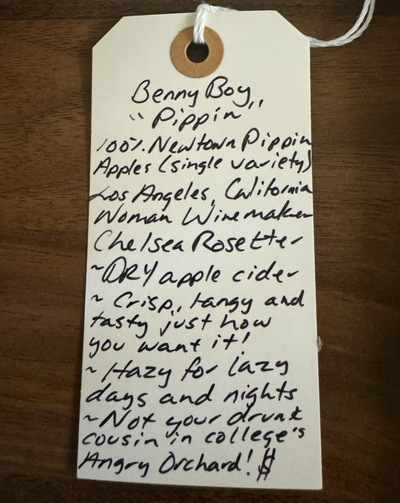 Benny Boy,,
"Pippin"
100% Newtown Pippin
Apples (single variety)
Los Angeles, California
Woman Winemaker
Chelsea Rosetter
~DRY apple cider
~ Crisp, tangy and
tasty just how
you want it!
~ Hazy for lazy
days and nights
~Not your drunk
cousin in college's
Angry Orchard! $